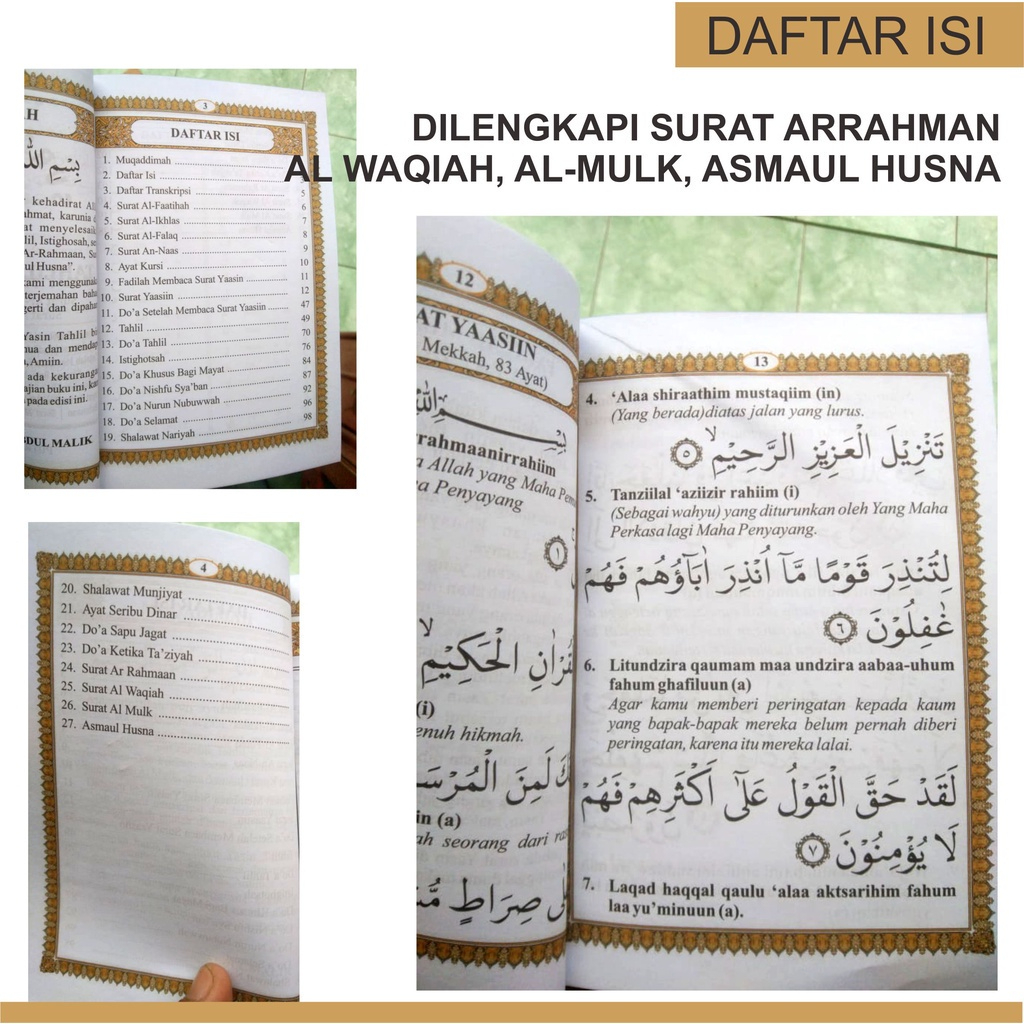 DAFTAR ISI
DILENGKAPI SURAT ARRAHMAN
AL WAQIAH, AL-MULK, ASMAUL HUSNA
3
DAFTAR ISI
1. Muqaddimah
2. Daftar Isi
3. Daftar Transkripsi
4. Surat Al-Faatihah
5. Surat Al-Ikhlas
6. Surat Al-Falaq
7. Surat An-Naas
8. Ayat Kursi
9. Fadilah Membaca Surat Yaasin
10. Surat Yaasiin
11. Do'a Setelah Membaca Surat Yaasiin
12. Tahlil
13. Do'a Tahlil
14. Istighotsah
15. Do'a Khusus Bagi Mayat
16. Do'a Nishfu Sya'ban
17. Do'a Nurun Nubuwwah
18. Do'a Selamat
19. Shalawat Nariyah
5
6
7
8
9
10
11
12
47
49
70
76
84
87
92
96
98
kehadirat
menyelesaik
Istighosah,
Ar-Rahmaan,
Husna".
kami menggunak
terjemahan
dan
Yasin Tahlil
Amiin.
ada kekurang
buku ini,
pada edisi ini.
MALIK
4
20. Shalawat Munjiyat
21. Ayat Seribu Dinar
22. Do'a Sapu Jagat
23. Do'a Ketika Ta'ziyah
24. Surat Ar Rahmaan
25. Surat Al Waqiah
26. Surat Al Mulk
27. Asmaul Husna
12
AT YAASIIN
Mekkah, 83 Ayat)
rrahmaanirrahiim
Allah yang Maha
Penyayang
١
الْحَكِيْمِ
(i)
enuh hikmah.
لَمِنَ
in (a)
seorang dari
صِرَاطٍ
13
4. ‘Alaa shiraathim mustaqiim (in)
(Yang berada)diatas jalan yang lurus.
تَنْزِيْلَ الْعَزِيْزِ الرَّحِيْمِۙ ٥
5. Tanziilal ‘aziizir rahiim (i)
(Sebagai wahyu) yang diturunkan oleh Yang Maha
Perkasa lagi Maha Penyayang.
لِتُنْذِرَ قَوْمًا مَّآ اُنْذِرَ اٰبَاۤؤُهُمْ فَهُمْ
غٰفِلُوْنَ ٦
6. Litundzira qaumam maa undzira aabaa-uhum
fahum ghafiluun (a)
Agar kamu memberi peringatan kepada kaum
yang bapak-bapak mereka belum pernah diberi
peringatan, karena itu mereka lalai.
لَقَدْ حَقَّ الْقَوْلُ عَلٰٓى اَكْثَرِهِمْ فَهُمْ
لَا يُؤْمِنُوْنَ ٧
7. Laqad haqqal qaulu ‘alaa aktsarihim fahum
laa yu’minuun (a).